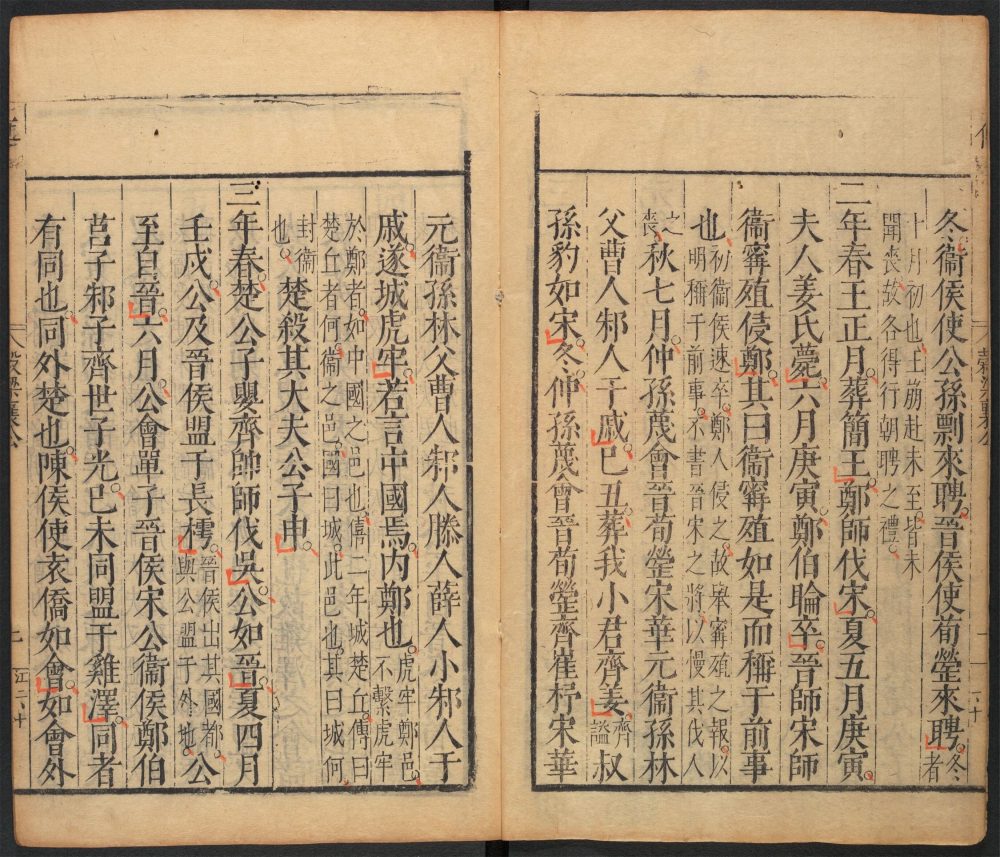 冬衞侯使公孫剽來聘晉侯使荀罃來聘冬
者
十月初也王崩赴未至皆未
聞喪故各得行朝聘之禮
二年春王正月葬簡王鄭師伐宋夏五月庚寅
夫人姜氏薨六月庚寅鄭伯睔卒晉師宋師
衞寗殖侵鄭其曰衞寗殖如是而稱于前事
也初衞侯速卒鄭人侵之故舉寗殖之報以
明稱于前事不書晉宋之將以慢其伐人
之
喪秋七月仲孫蔑會晉荀罃宋華元衞孫林
父曹人邾人于戚已丑葬我小君齊姜齊
謚叔
孫豹如宋冬仲孫蔑會晉荀罃齊崔杼宋華
元衞孫林父曹人邾人滕人薛人小邾人于
戚遂城虎牢若言中國焉內鄭也虎牢鄭邑
不繫虎牢
於鄭者如中國之邑也僖二年城楚丘傳曰
楚丘者何衞之邑國曰城此邑也其曰城何
封衞
也楚殺其大夫公子申
三年春楚公子嬰齊帥師伐吳公如晉夏四月
壬戌公及晉侯盟于長樗晉侯出其國都
與公盟于外地公
至自晉六月公會單子晉侯宋公衞侯鄭伯
莒子邾子齊世子光已未同盟于雞澤同者
有同也同外楚也陳侯使袁僑如會如會外